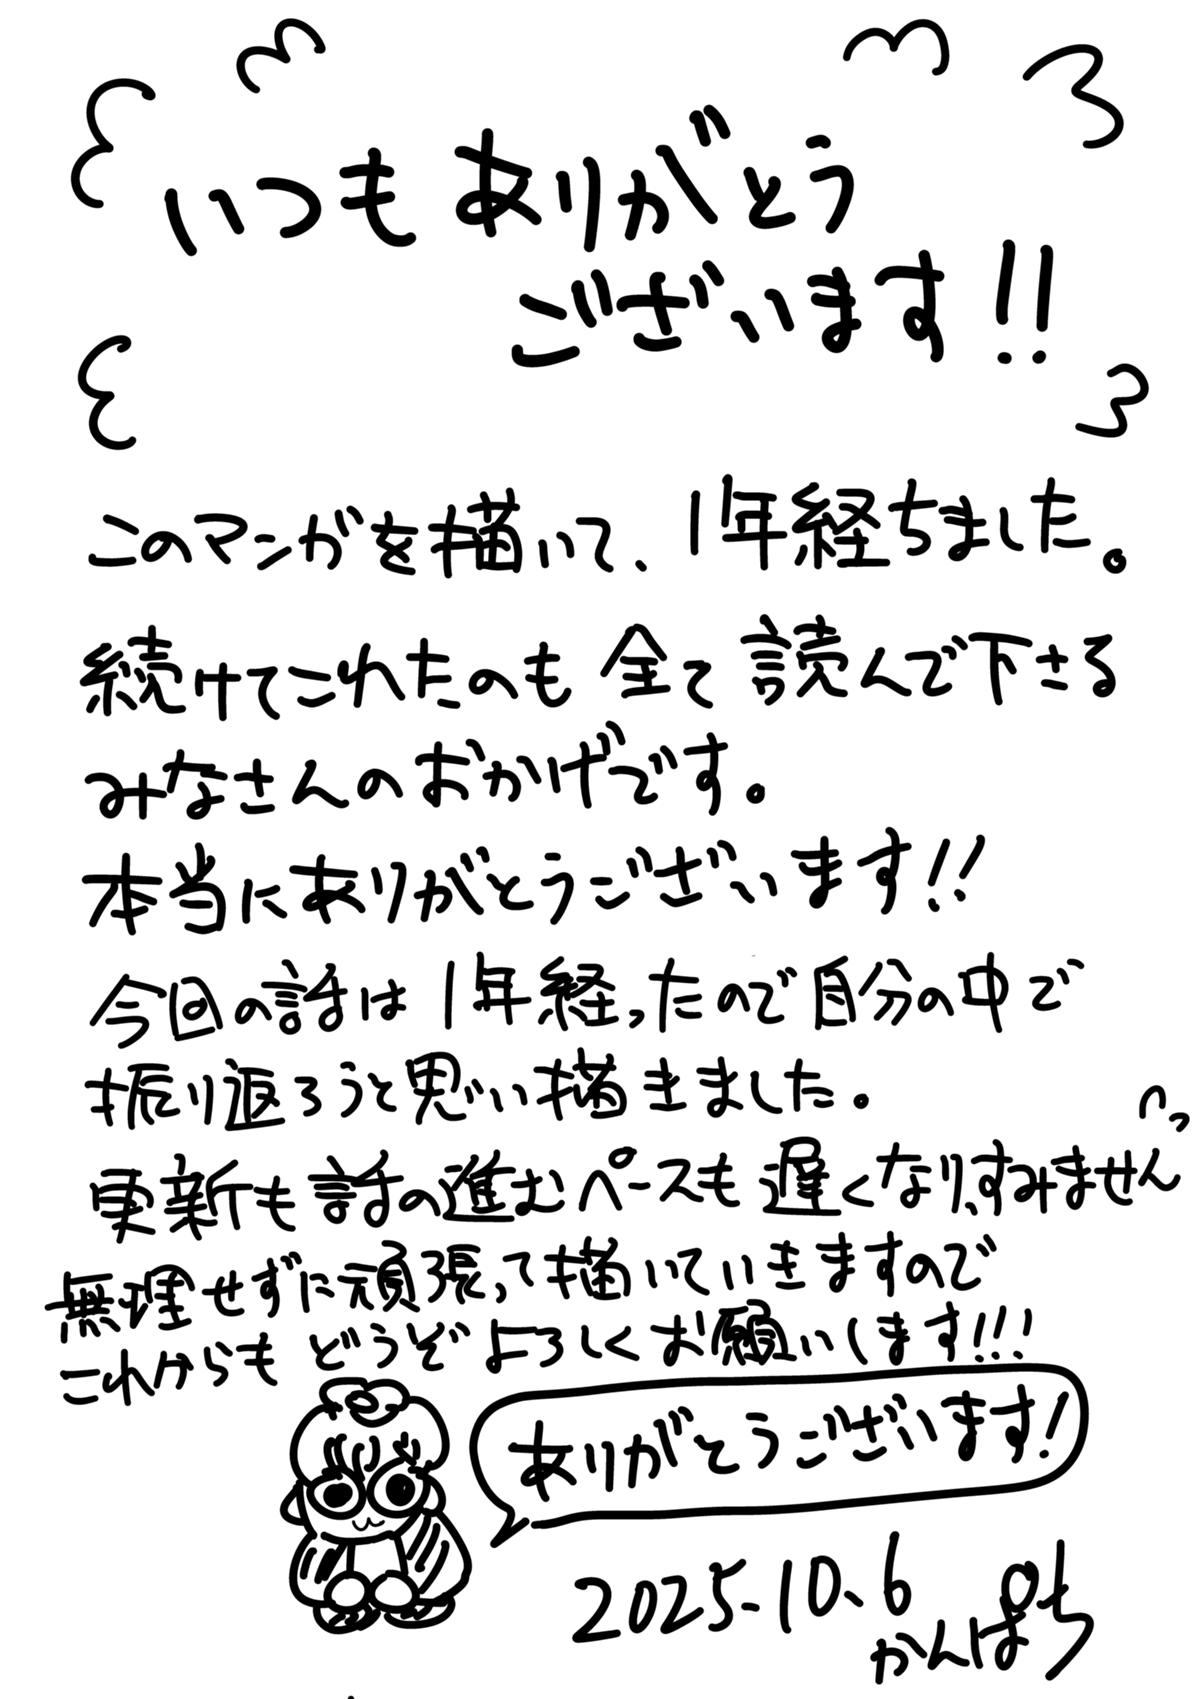 いつもありがとう
ございます!!
このマンガを描いて、1年経ちました。
続けてこれたのも全て読んで下さる
みなさんのおかげです。
本当にありがとうございます!!
今回の話は1年経ったので自分の中で
振り返ろうと思い描きました。
更新も話の進むペースも遅くなりすみません
無理せずに頑張って描いていきますので
これからもどうぞよろしくお願いします!!!
ありがとうございます!
2025.10.6
かんぱち